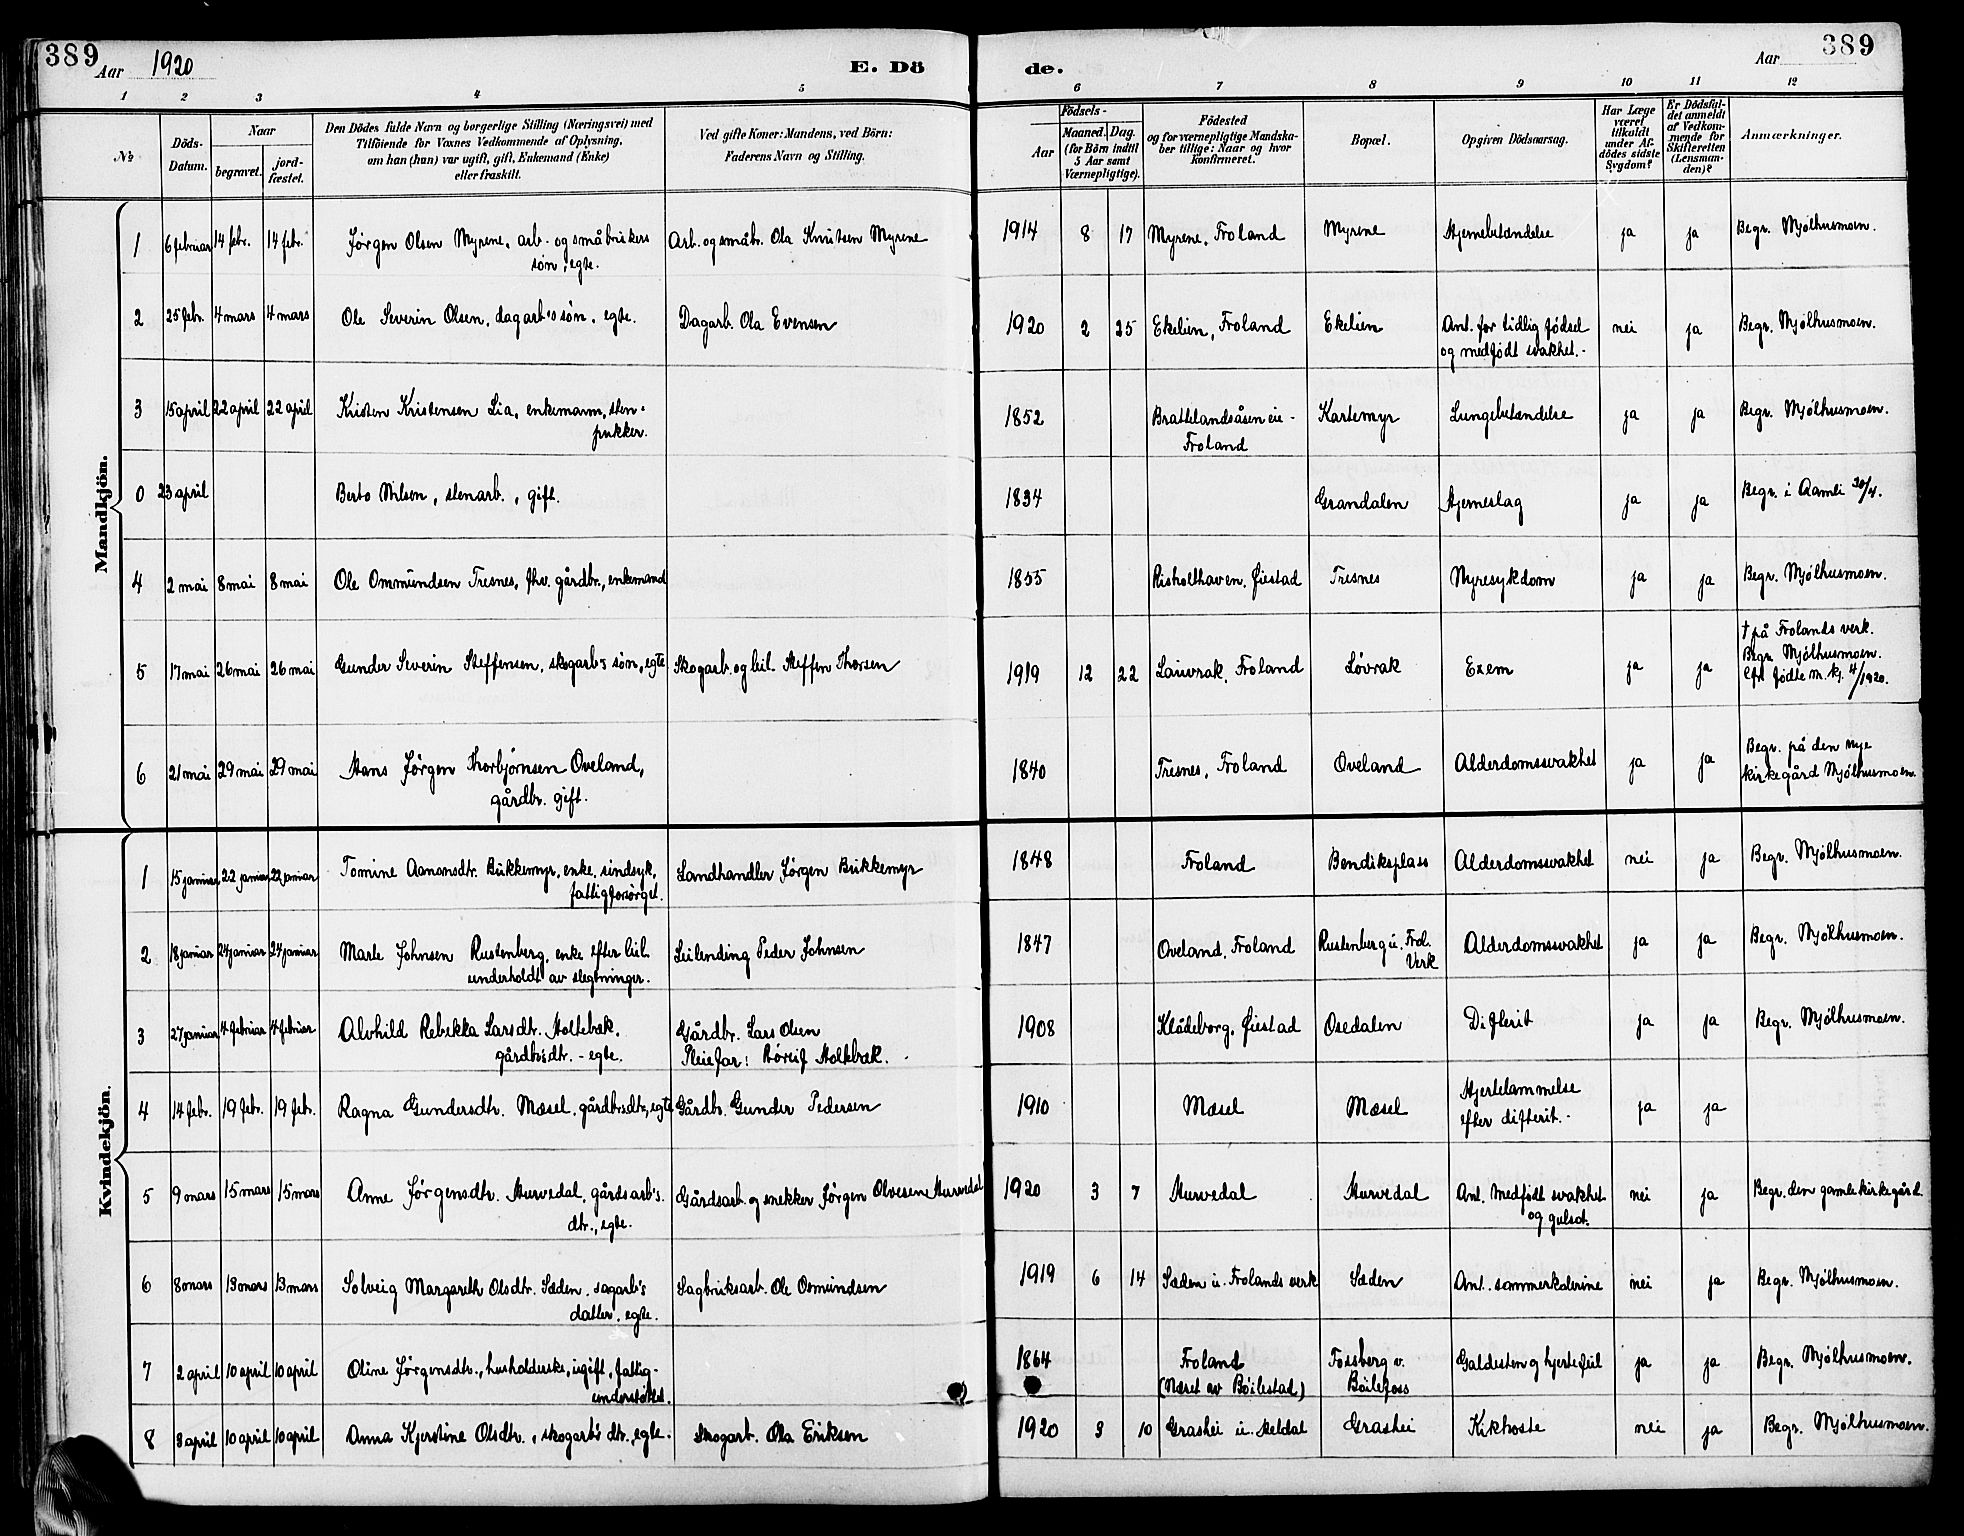 389
Aar 1920
E. Dö
de.
Aar
389
1 2 3 4 5 6 7 8 9 10 11 12
№
Döds-
Datum.
Naar
begravet.
jord-
fæstet.
Den Dödes fulde Navn og borgerlige Stilling (Næringsvei) med
Tilföiende for Voxnes Vedkommende af Oplysning,
om han (hun) var ugift, gift, Enkemand (Enke)
eller fraskilt.
Ved gifte Koner: Mandens, ved Börn:
Faderens Navn og Stilling.
Födsels-
Aar
Maaned. Dag.
(for Börn indtil
5 Aar samt
Værnepligtige).
Födested
og for værnepligtige Mandska-
ber tillige: Naar og hvor
konfirmeret.
Bopæl.
Opgiven Dödsaarsag.
Har Læge
været
tilkaldt
under Af-
dödes sidste
Sygdom?
Er Dödsfal-
det anmeldt
af Vedkom-
mende for
Skifteretten
(Lensman-
den)?
Anmærkninger.
Mandkjön.
1 6 februar 14 febr. 14 febr. Jørgen Olsen Myrene, arb. og småbrukers Arb. og småbr. Ola Knutsen Myrene 1914 8 17 Myrene, Froland Myrene Hjernebetændelse ja ja Begr. Mjølhusmoen.
søn, egte.
2 25 febr. 4 mars 4 mars Ole Severin Olsen, dagarb's søn, egte. Dagarb. Ola Evensen 1920 2 25 Ekelien, Froland Ekelien Ant. for tidlig fødsel nei ja Begr. Mjølhusmoen.
og medfødt svakhet.-
3 15 april 22 april 22 april Kristen Kristensen Lia, enkemann, sten- 1852 Brattelandsåsen eie - Kartemyr Lungebetændelse ja ja Begr. Mjølhusmoen.
pukker. Froland
0 23 april Berto Nilsen, stenarb., gift. 1834 Grandalen Hjerneslag ja ja Begr. i Aamli 30/4.
4 2 mai 8 mai 8 mai Ole Ommundsen Tresnes, fhv. gårdbr., enkemand 1855 Risholthaven, Øiestad Tresnes Nyresykdom ja ja Begr. Mjølhusmoen.
5 17 mai 26 mai 26 mai Gunder Severin Steffensen, skogarb's søn, egte Skogarb. og leil. Steffen Thorsen 1919 12 22 Lauvrak, Froland Løvrak Exem ja ja † på Frolands verk.
Begr. Mjølhusmoen.
Cfr. fødte m.kj. 4/1920.
6 21 mai 29 mai 29 mai Hans Jørgen Thorbjørnsen Oveland, 1840 Tresnes, Froland Oveland Alderdomssvakhet ja ja Begr. på den nye
gårdbr. gift. kirkegård Mjølhusmoen.
Kvindekjön.
1 15 januar 22 januar 22 januar Tomine Aanonsdtr. Bukkemyr, enke, sindsyk, Landhandler Jørgen Bukkemyr 1848 Froland Bendiksplass Alderdomssvakhet nei ja Begr. Mjølhusmoen.
fattigforsørget.
2 18 januar 24 januar 24 januar Marte Johnsen Rustenberg, enke efter leil. Leilending Peder Johnsen 1847 Oveland, Froland Rustenberg u. Frol. Alderdomssvakhet ja ja Begr. Mjølhusmoen.
underholdt av slegtninger. Verk
3 27 januar 4 februar 4 februar Alvhild Rebekka Larsdtr. Holtebæk. Gårdbr. Lars Olsen 1908 Klødeborg, Øiestad Osedalen Difterit ja ja Begr. Mjølhusmoen.
gårdbrsdtr. - egte. Pleiefar: Holtebæk.
4 14 febr. 19 febr. 19 febr. Ragna Gundersdtr. Mæsel, gårdbrsdtr, egte Gårdbr. Gunder Pedersen 1910 Mæsel Mæsel Hjertelammelse ja ja
efter difterit.-
5 9 mars 15 mars 15 mars Anne Jørgensdtr. Hurvedal, gårdsarb's. Gårdsarb. og snekker Jørgen Olvesen Hurvedal 1920 3 7 Hurvedal Hurvedal Ant. Medfødt svakhet nei ja Begr. den gamle kirkegård
dtr., egte. og gulsot.
6 8 mars 13 mars 13 mars Solveig Margareth Olsdtr. Sæden, sagarb's Sagbruksarb. Ole Osmundsen 1919 6 14 Sæden u. Frolands verk Sæden Ant. sommerkolerine nei ja Begr. Mjølhusmoen.
datter, egte.
7 2 april 10 april 10 april Oline Jørgensdtr., husholderske, ugift, fattig- 1864 Froland Fossberg v. Galdesten og hjertefeil ja ja Begr. Mjølhusmoen.
understøttet. (Næset av Bøilestad) Bøilefoss
8 3 april 10 april 10 april Anna Kjerstine Olsdtr., skogarb's dtr., egte. Skogarb. Ola Eriksen 1920 3 10 Grashei u. Heldal Grashei Kikhoste nei ja Begr. Mjølhusmoen.